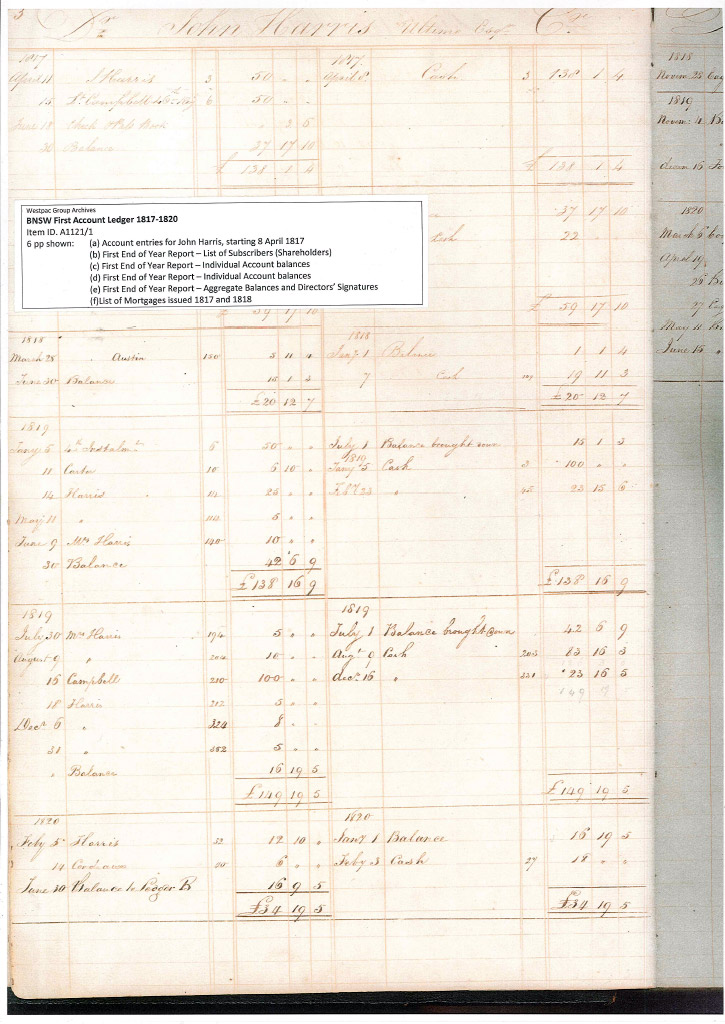 3 Dr John Harris Ultimo Esqr Cr
1817 1817
April 11 J Harris 3 50 " " April 8 Cash 3 138 1 4
15 Campbell 6 50 " "
June 18 Check Book " 2 6
30 Balance 37 17 10
£ 138 " 4 £ 138 1 4
Westpac Group Archives
BNSW First Account Ledger 1817-1820
Item ID. A1121/1
6 pp shown: (a) Account entries for John Harris, starting 8 April 1817
(b) First End of Year Report – List of Subscribers (Shareholders)
(c) First End of Year Report – Individual Account balances
(d) First End of Year Report – Individual Account balances
(e) First End of Year Report – Aggregate Balances and Directors' Signatures
(f)List of Mortgages issued 1817 and 1818
37 17 10
Cash 22 " "
59 17 10 £ 59 17 10
1818 1818
March 28 Austin 130 5 11 4 Jany 1 Balance 1 1 4
June 30 Balance 15 1 3 7 Cash 19 11 3
£20 12 7 £20 12 7
1819
Jany 5 4th Instalmt 6 50 " " July 1 Balance brought down 15 1 3
1819
11 Carter 10 5 10 " Jany 5 Cash 3 100 " "
14 Harris 14 25 " " Feby 23 " 45 23 15 6
May 11 " 114 5 " "
June 9 Mrs Harris 140 10 " "
30 Balance 42 6 9
£138 16 9 £138 16 9
1819 1819
July 30 Mrs Harris 194 5 " " July 1 Balance brought down 42 6 9
August 9 " 204 10 " " Augt 9 Cash 203 83 16 3
16 Campbell 210 100 " " decr 16 " 331 23 16 5
18 Harris 212 5 " " 149
Decr 6 " 324 8 " "
31 " 352 5 " "
" Balance 16 19 5
£149 19 5 £149 19 5
1820 1820
Feby 5 Harris 32 12 10 " Jany 1 Balance 16 19 5
14 6 " " Feby 3 Cash 27 18 " "
June 30 Balance to Legger B 16 9 5
£34 19 5 £34 19 5
1818
Novem 28
1819
Novem 4
decem 15
1820
March 6
April 19
28
27
May 11
June 15